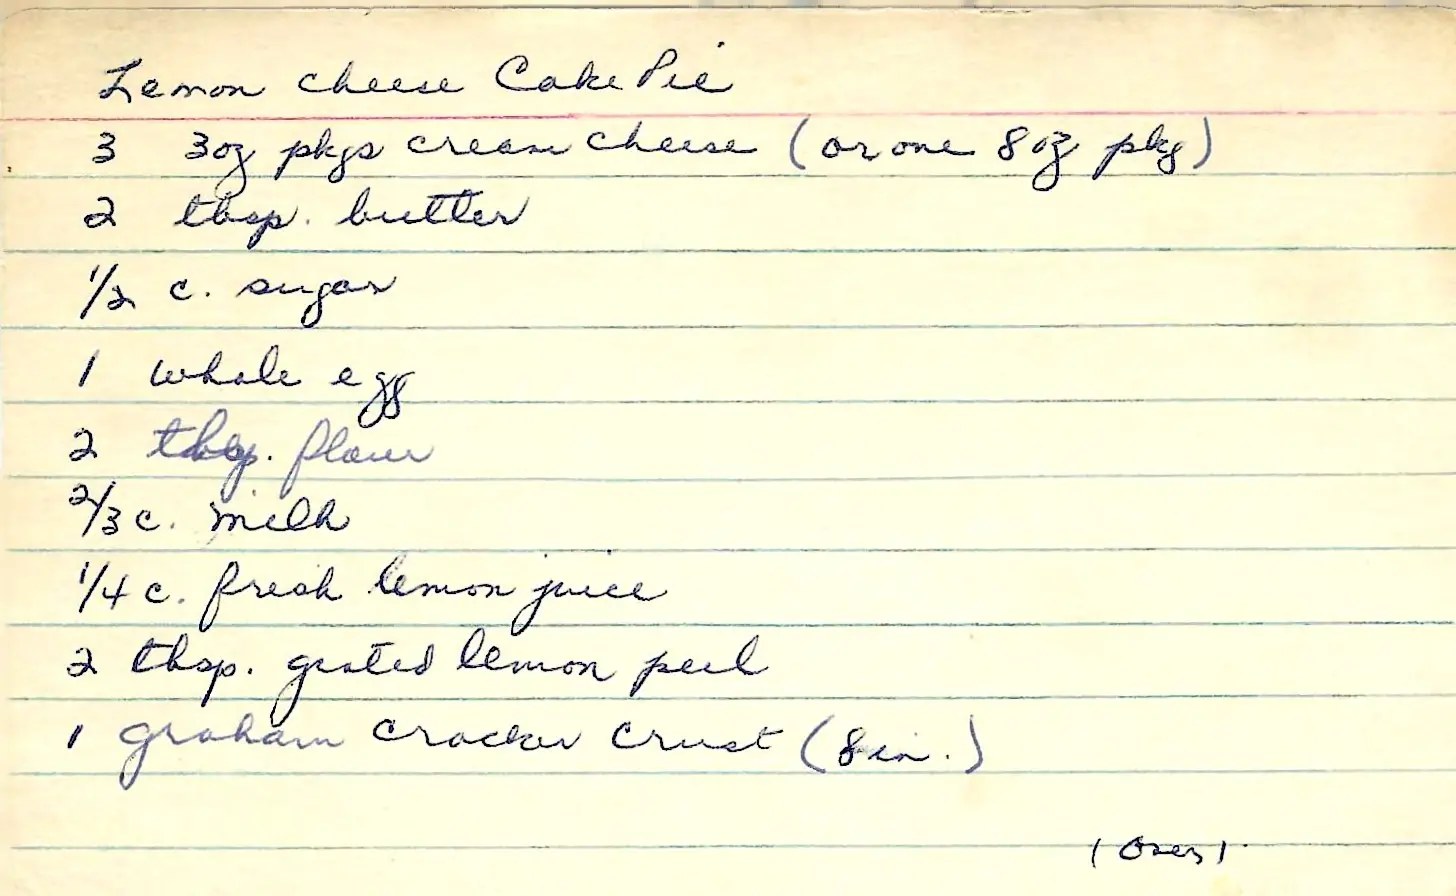 Lemon cheese Cake Pie
3 3oz pkgs cream cheese (or one 8oz pkg)
2 tbsp. butter
1/2 c. sugar
1 whole egg
2 tbsp. flour
2/3 c. milk
1/4 c. fresh lemon juice
2 tbsp. grated lemon peel
1 graham cracker crust (8 in.)
(Over)